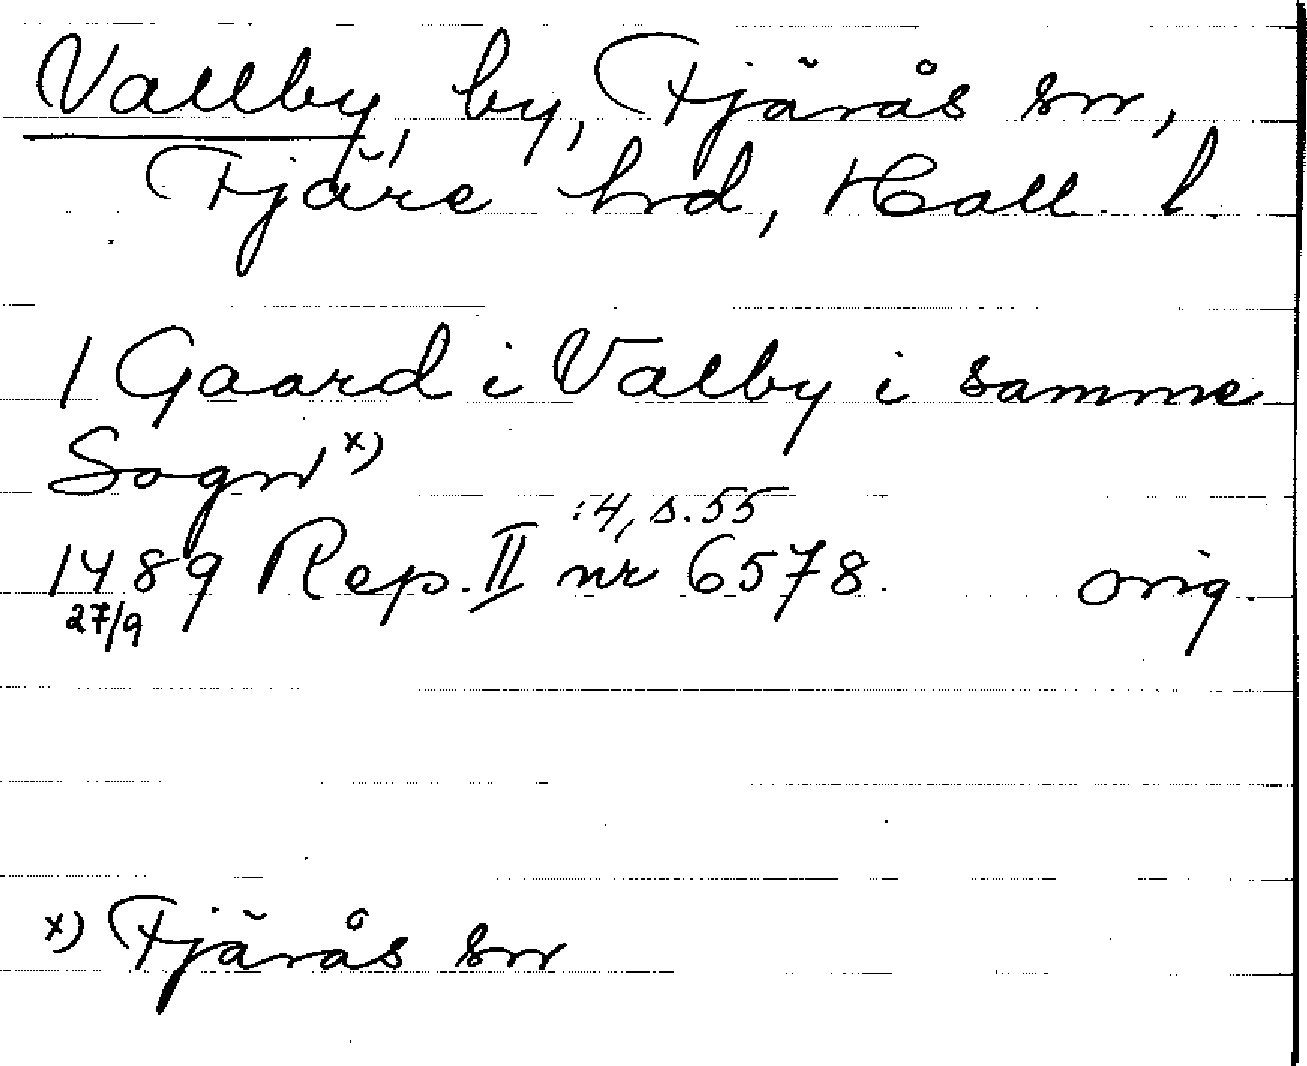 Vallby, by, Fjärås sn,
Fjäre hd, Hall. l.
1 Gaard i Valby i samme
Sogn x)
:4, s. 55
1489 Rep. II nr 6578. orig.
27/9
x) Fjärås sn